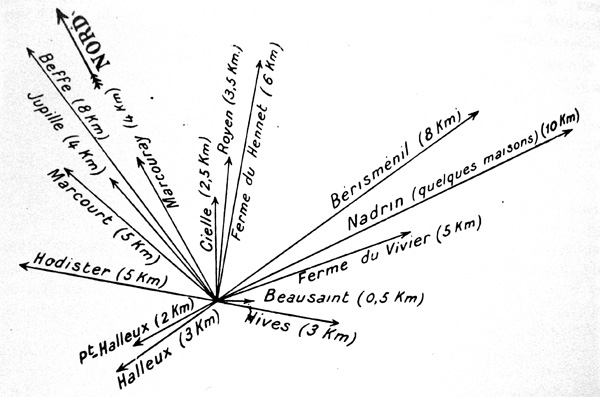 NORD.
Beffe (8 Km)
Jupille (4 Km)
Marcouray (4 Km)
Marcourt (5 Km)
Hodister (5 Km)
Cielle (2,5 Km)
Royen (3,5 Km.)
Ferme du Hennet (6 Km)
Bérisménil (8 Km)
Nadrin (quelques maisons) (10 Km)
Ferme du Vivier (5 Km)
Beausaint (0,5 Km)
Hives (3 Km)
pt. Halleux (2 Km)
Halleux (3 Km)